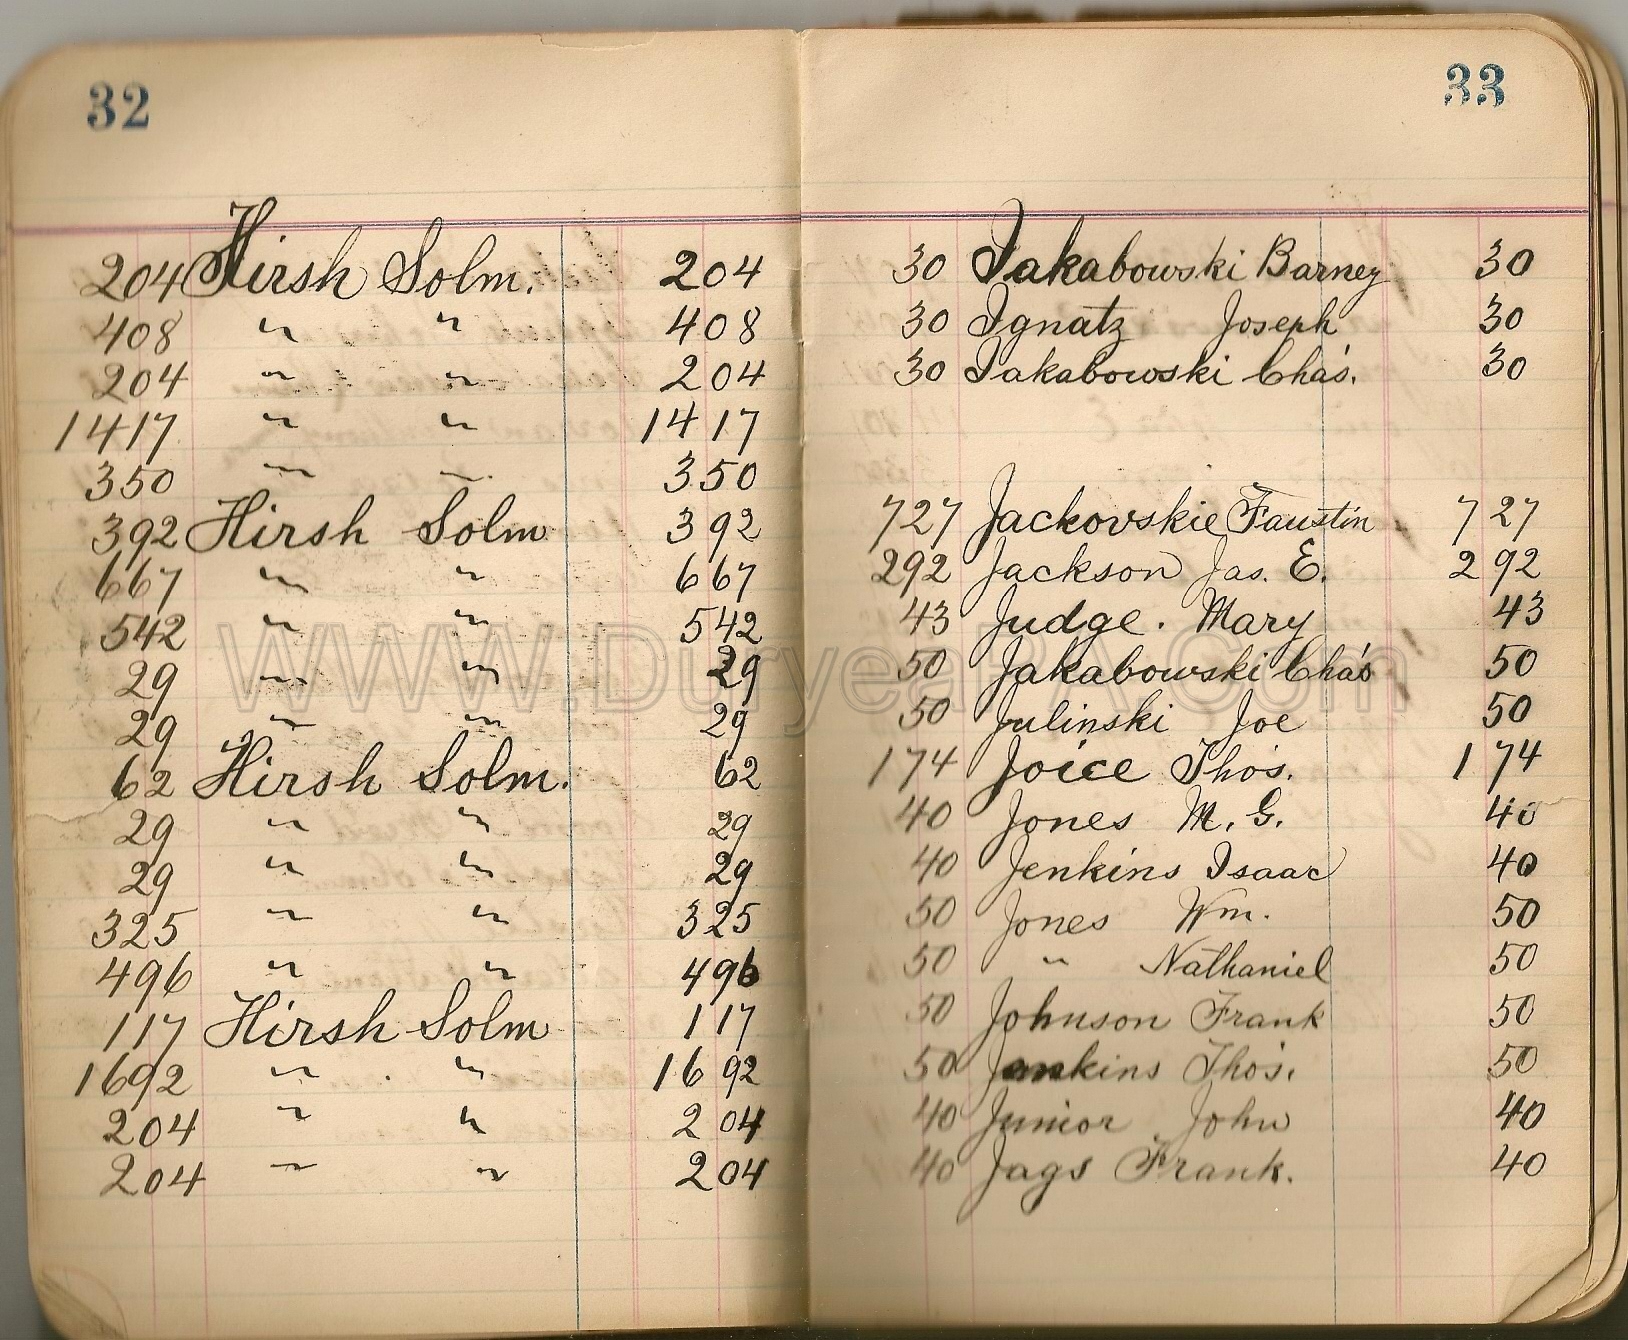 32
204 Hirsh Solm. 204
408 " " 408
204 " " 204
1417 " " 1417
350 " " 350
392 Hirsh Solm 392
667 " " 667
542 " " 542
29 " " 29
29 " " 29
62 Hirsh Solm. 62
29 " " 29
29 " " 29
325 " " 325
496 " " 496
117 Hirsh Solm 117
1692 " " 1692
204 " " 204
204 " " 204
33
30 Iakabowski Barney 30
30 Ignatz Joseph 30
30 Iakabowski Chas. 30
727 Jackovskie Faustin 727
292 Jackson Jas. E. 292
43 Judge. Mary 43
50 Jakabowski Chas 50
50 Julinski Joe 50
174 Joice Thos. 174
40 Jones M. G. 40
40 Jenkins Isaac 40
50 Jones Wm. 50
50 " Nathaniel 50
50 Johnson Frank 50
50 Jenkins Thos. 50
40 Junior John 40
40 Jags Frank. 40
www.DuryeaPA.com